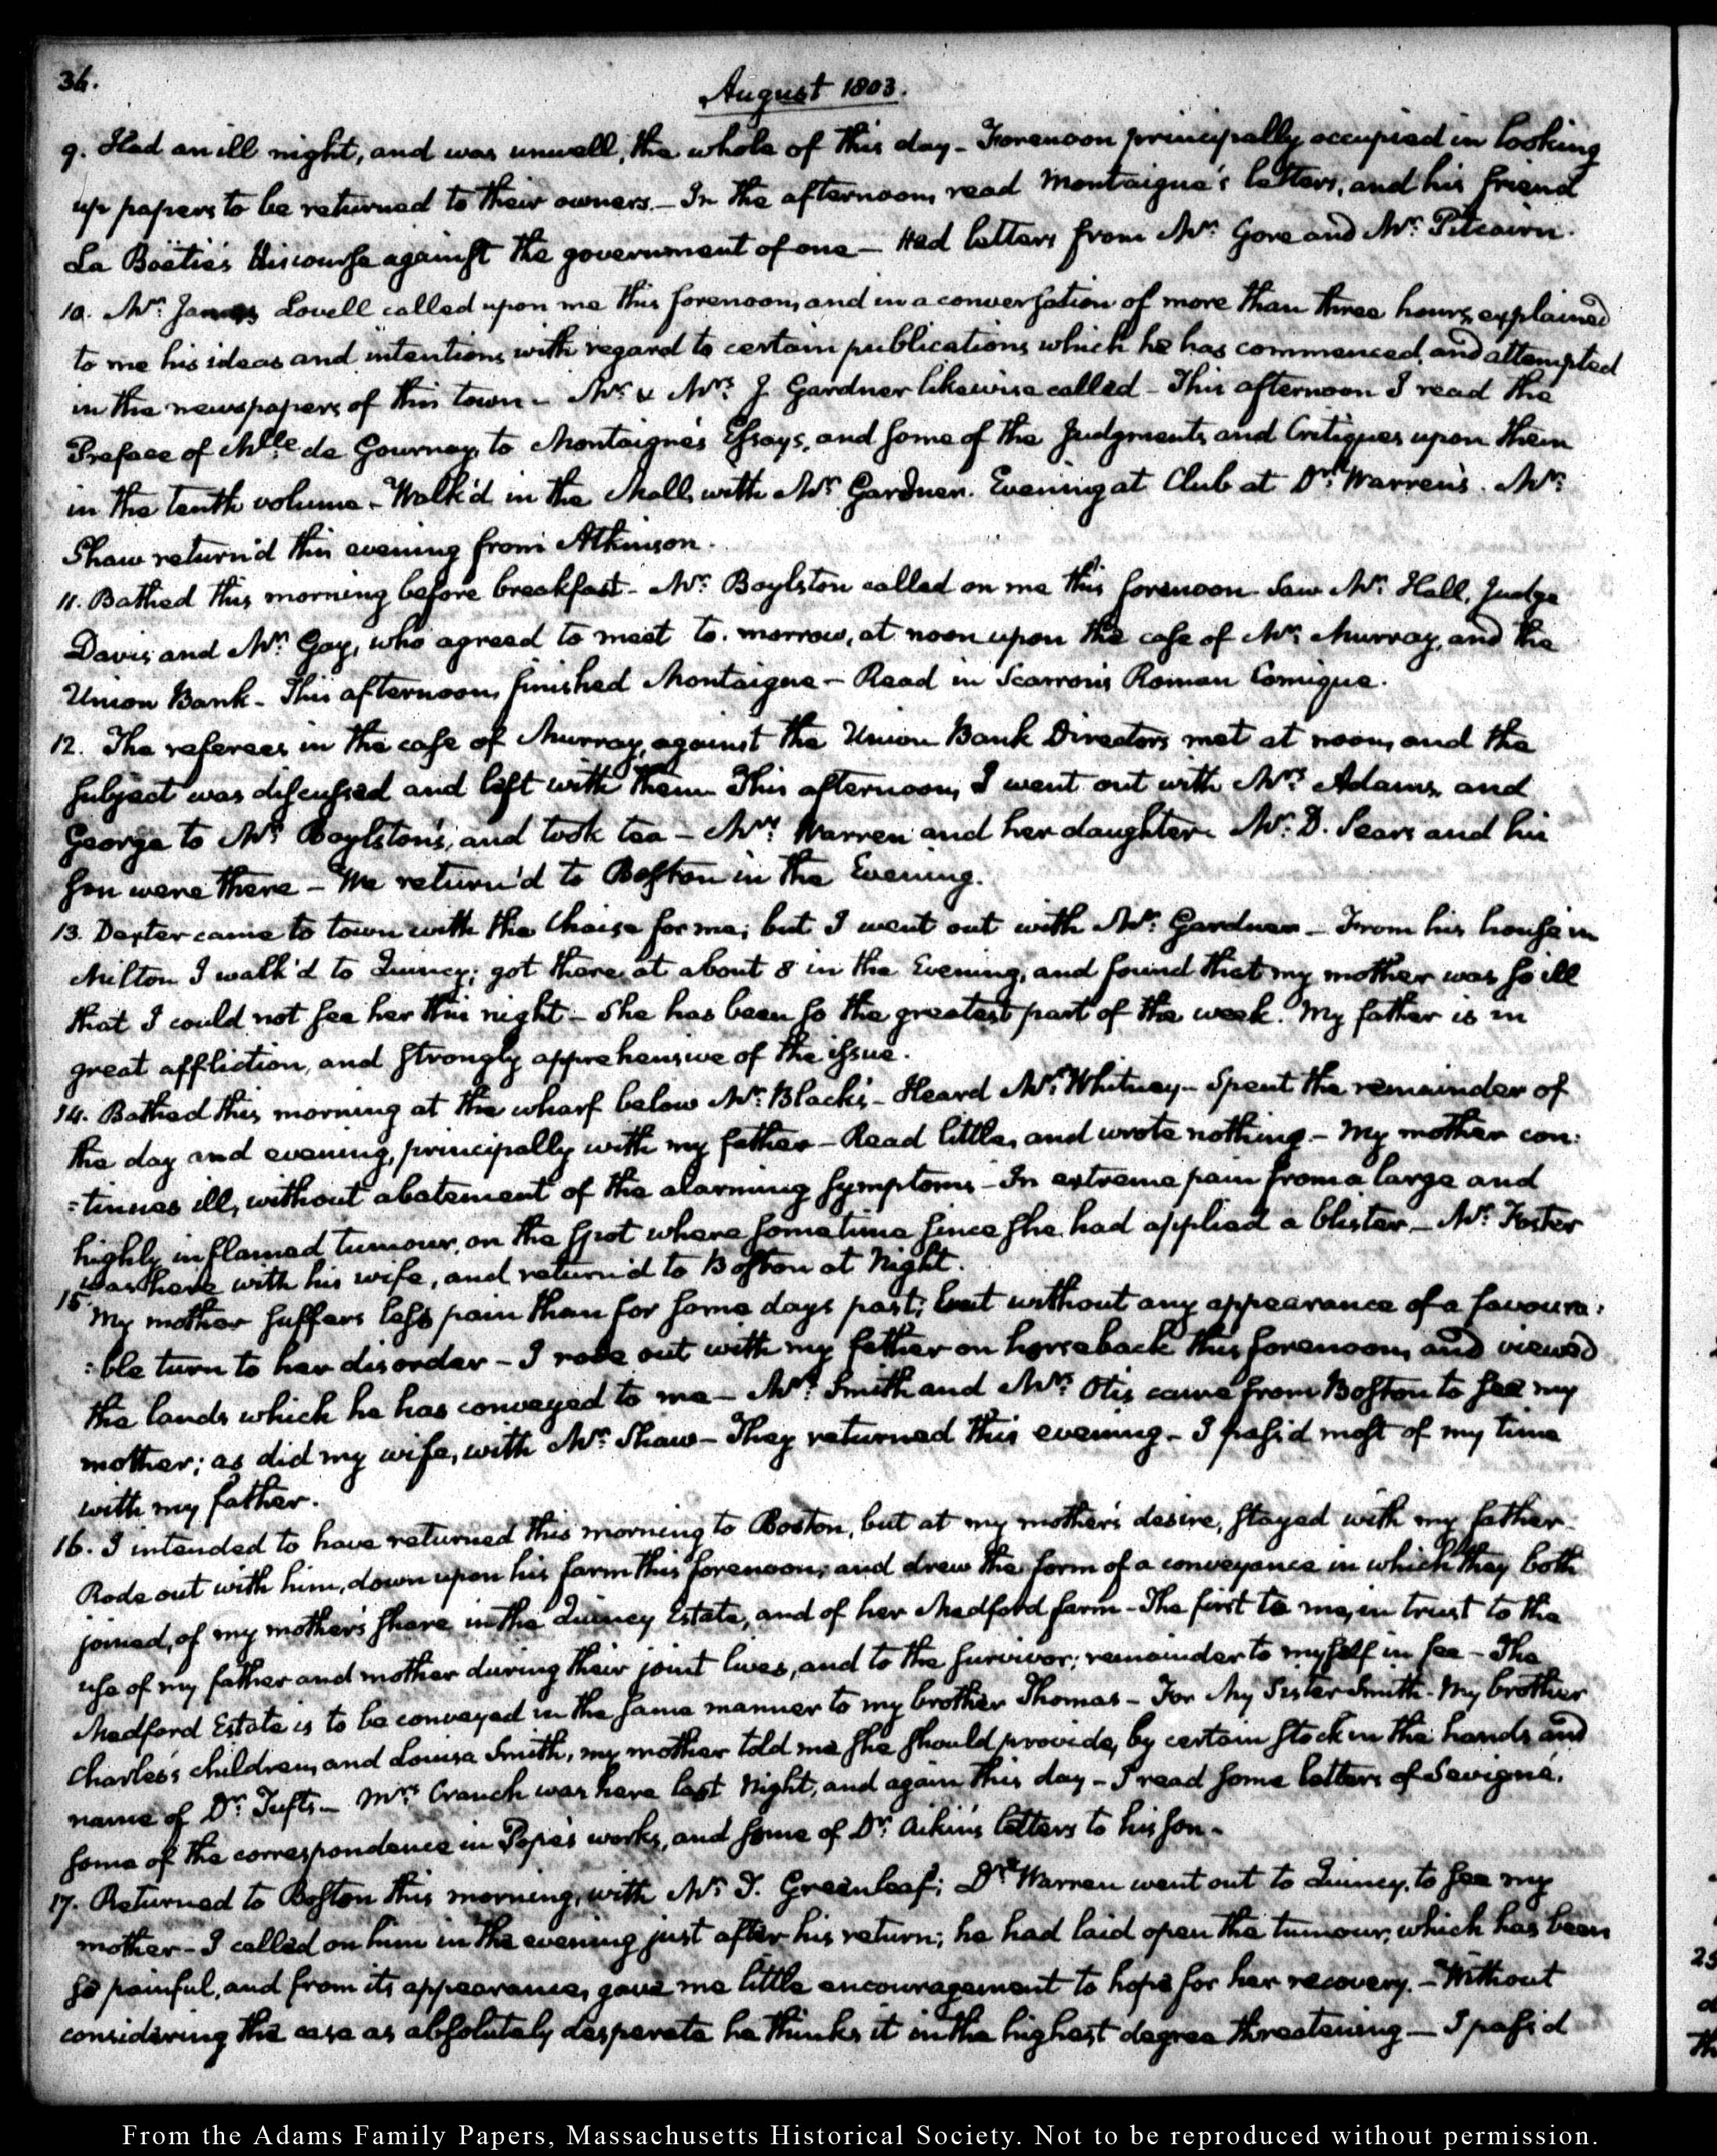 36.
August 1803.
9. Had an ill night, and was unwell, the whole of this day - Forenoon principally occupied in looking
up papers to be returned to their owners. - In the afternoon, read Montaigne's letters, and his friend
La Boëtie's Discourse against the government of one - Had letters from Mr. Gore and Mr. Pitcairn.
10. Mr. James Lovell called upon me this forenoon, and in a conversation of more than three hours, explained
to me his ideas and intentions with regard to certain publications which he has commenced, and attempted
in the newspapers of this town - Mr. & Mrs. J. Gardner likewise called - This afternoon I read the
Preface of Mlle de Gournay, to Montaigne's Essays, and some of the Judgments and Critiques upon them
in the tenth volume - Walk'd in the Mall, with Mr. Gardner. Evening at Club at Dr. Warren's. Mr.
Shaw return'd this evening from Atkinson.
11. Bathed this morning before breakfast - Mr. Boylston called on me this forenoon. Saw Mr. Hall, Judge
Davis and Mr. Gay, who agreed to meet to-morrow, at noon upon the case of Mr. Murray, and the
Union Bank - This afternoon, finished Montaigne - Read in Scarron's Roman Comique.
12. The referees in the case of Murray, against the Union Bank Directors met at noon, and the
subject was discussed and left with them. This afternoon, I went out with Mrs. Adams, and
George to Mr. Boylston's, and took tea - Mrs. Warren and her daughter. Mr. D. Sears and his
son were there - We return'd to Boston in the Evening.
13. Dexter came to town with the Chaise for me; but I went out with Mr. Gardner - From his house in
Milton I walk'd to Quincy; got there at about 8 in the Evening, and found that my mother was so ill
that I could not see her this night - She has been so the greatest part of the week. My father is in
great affliction, and strongly apprehensive of the issue.
14. Bathed this morning at the wharf below Mr. Black's - Heard Mr. Whitney - Spent the remainder of
the day and evening, principally with my father - Read little, and wrote nothing. - My mother con:
=tinues ill, without abatement of the alarming symptoms - In extreme pain from a large and
highly inflamed tumour, on the spot where sometime since she had applied a blister. - Mr. Foster
was here with his wife, and return'd to Boston at Night.
15. My mother suffers less pain than for some days past; but without any appearance of a favoura:
:ble turn to her disorder - I rode out with my father on horseback this forenoon, and viewed
the lands which he has conveyed to me - Mrs. Smith and Mrs. Otis came from Boston to see my
mother; as did my wife, with Mr. Shaw - They returned this evening - I pass'd most of my time
with my father.
16. I intended to have returned this morning to Boston, but at my mother's desire, stayed with my father.
Rode out with him, down upon his farm this forenoon; and drew the form of a conveyance in which they both
joined, of my mother's share in the Quincy Estate, and of her Medford farm - The first to me, in trust to the
use of my father and mother during their joint lives, and to the survivor; remainder to myself in fee - The
Medford Estate is to be conveyed in the same manner to my brother Thomas - For My Sister Smith. My brother
Charles's children, and Louisa Smith, my mother told me she should provide, by certain stock in the hands and
name of Dr. Tufts - Mrs. Cranch was here last Night, and again this day - I read some letters of Sevigné,
some of the correspondence in Pope's works, and some of Dr. Aikin's letters to his son -
17. Returned to Boston this morning, with Mr. T. Greenleaf; Dr. Warren went out to Quincy, to see my
mother - I called on him in the evening just after his return; he had laid open the tumour, which has been
so painful, and from its appearance, gave me little encouragement to hope for her recovery. - Without
considering the case as absolutely desperate he thinks it in the highest degree threatening - I pass'd
From the Adams Family Papers, Massachusetts Historical Society. Not to be reproduced without permission.